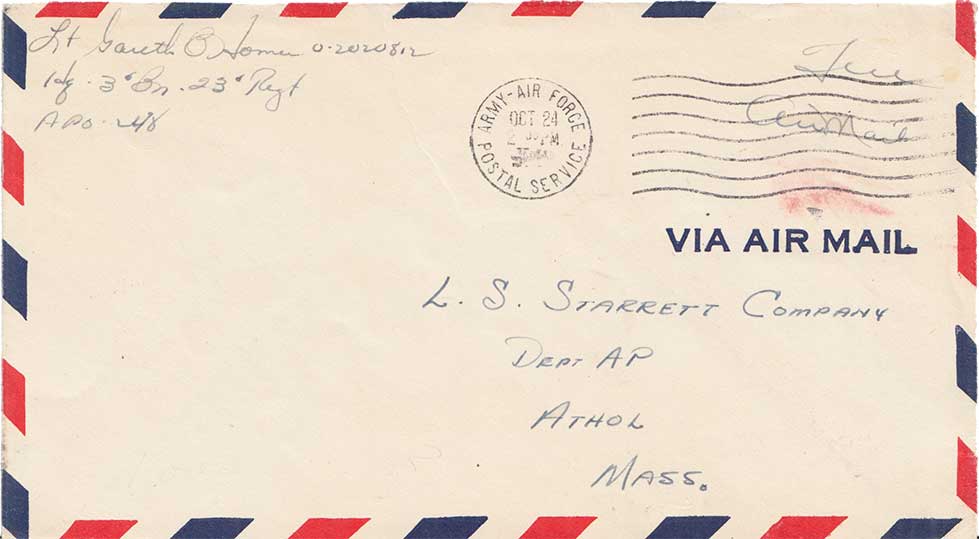 Lt Gareth B 0-2020812
Hq. 3d Bn. 23d Regt
APO. 248
ARMY-AIR FORCE
OCT 24
2 PM
POSTAL SERVICE
Free
Air Mail
VIA AIR MAIL
L. S. STARRETT COMPANY
DEPT AP
ATHOL
MASS.